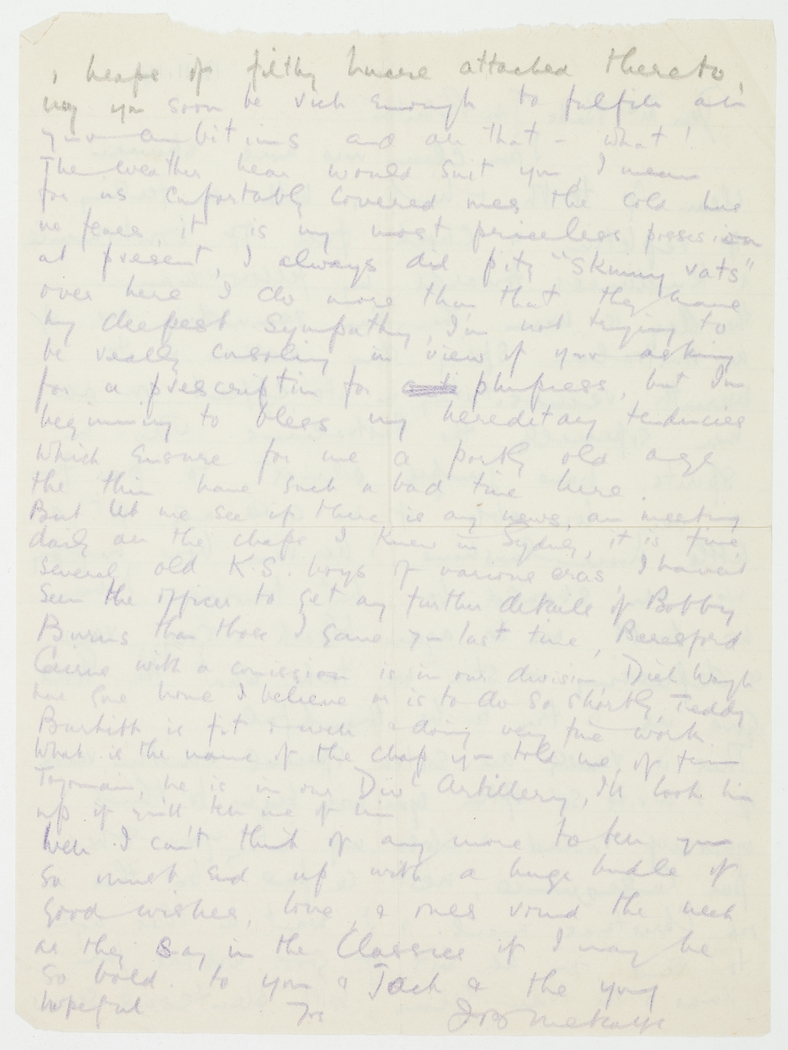 , heaps of filthy lucre attached thereto,
may you soon be rich enough to fulfil all
your ambitions and all that - what!
The weather hear would suit you, I mean
for us comfortably covered men the cold has
no fears, it is my most priceless possesion
at present, I always did pity "skinny rats"
over here I do more than that they have
my deepest sympathy, I'm not trying to
be really consoling in view of your asking
for a prescription for plumpness, but I'm
beginning to bless my hereditary tendencies
which ensure for me a portly old age
the thin have such a bad time here.
But let me see if there is any news, am meeting
daily all the chaps I knew in Sydney, it is fine,
several old K.S. boys of various eras, I haven't
seen the officer to get any further details of Bobby
Burns than those I gave you last time, Beresford
Cairns with a comission is in our division, Dick Waugh
has gone home I believe or is to do so shortly, Teddy
Burkitt is fit & well & doing very fine work.
What is the name of the chap you told me of from
he is in our Div Artillery, I'll look him
up if you'll tell me of him
Well I can't think of any more to tell you
so must end up with a huge bundle of
good wishes, love, & ones round the neck
as they say in the Classics if I may be
so bold. to you & Jack & the young
hopeful Yrs Metcalfe